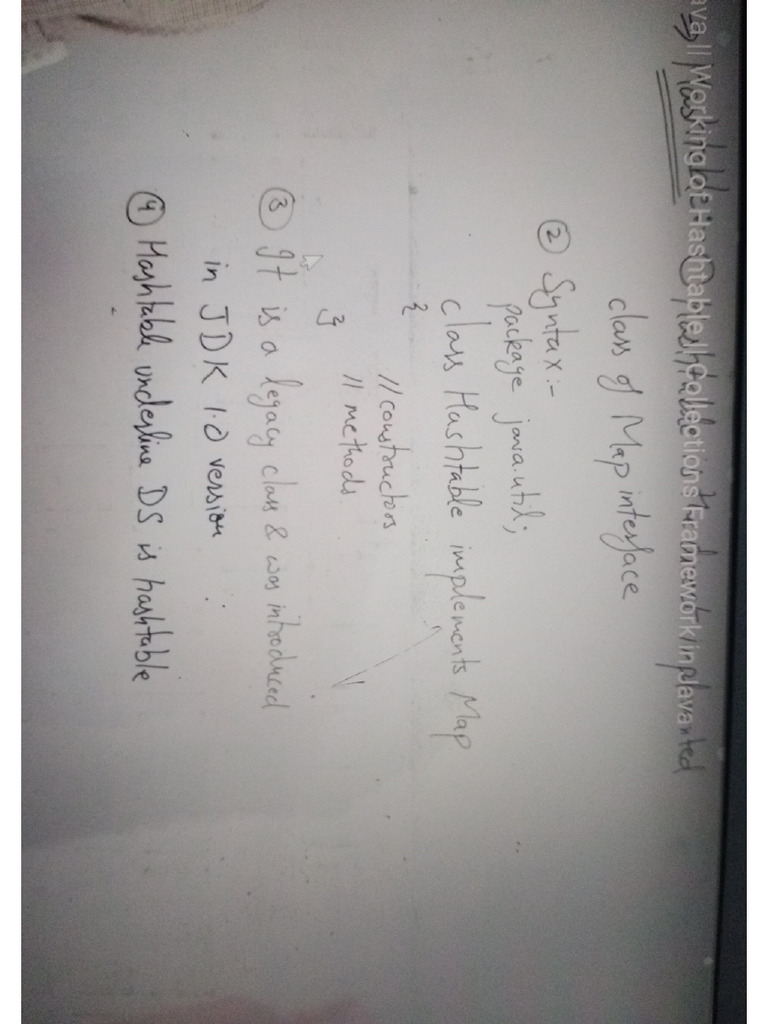 ava || Working of Hashtable || Collections Framework in Java
=> Hashtable
① Hashtable is the implemented
class of Map interface
② Syntax:-
package java.util;
class Hashtable implements Map
{
//constructors
// methods
}
③ It is a legacy class & was introduced
in JDK 1.0 version
④ Hashtable underline DS is hashtable